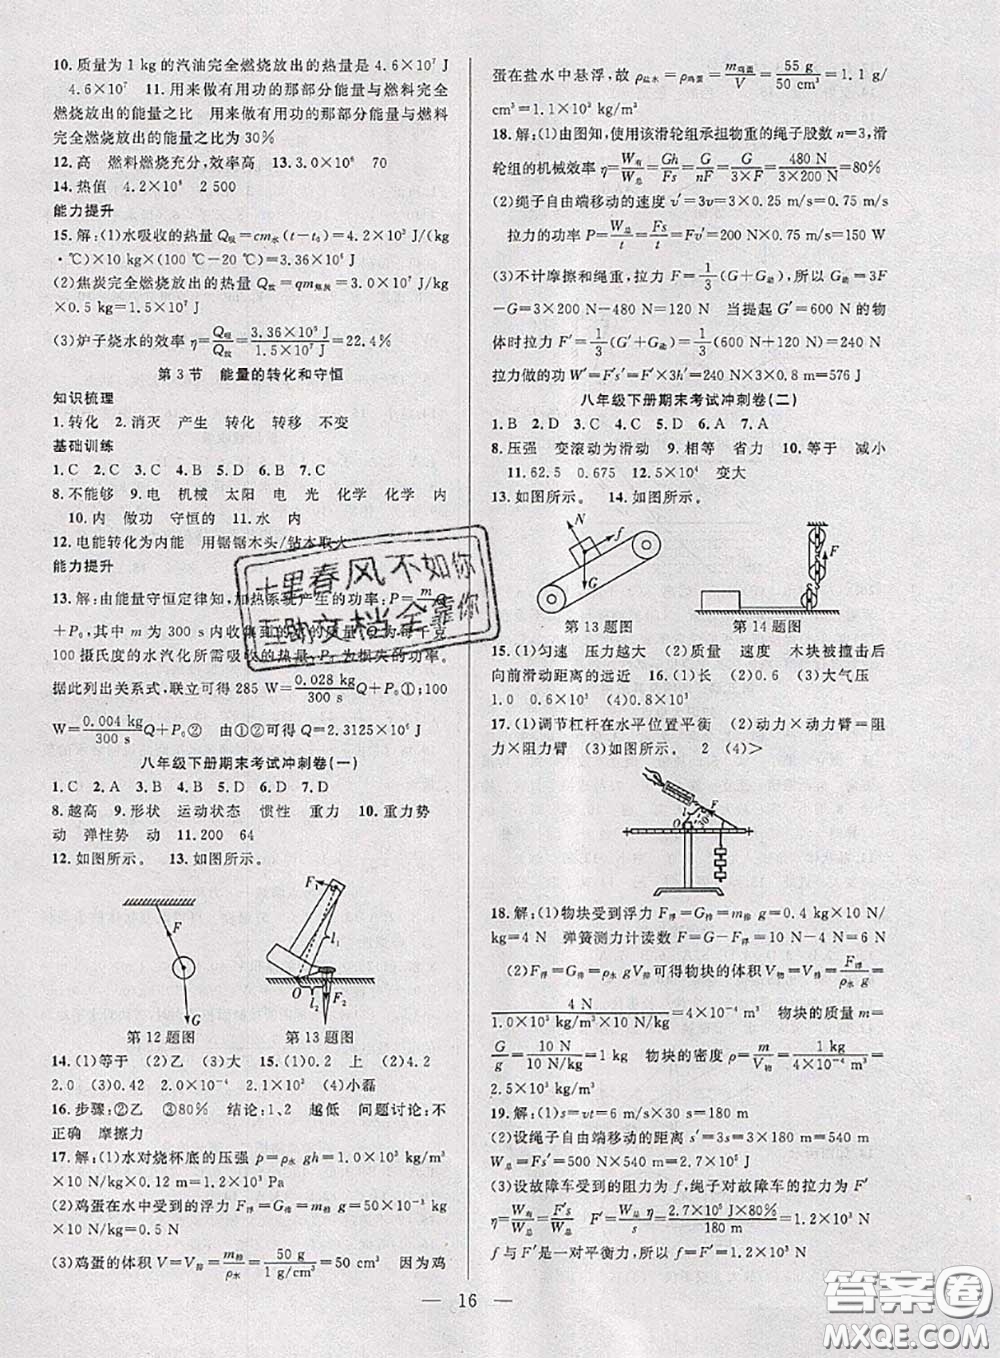 10.质量为1 kg的汽油完全燃烧放出的热量是4.6×10⁷ J
4.6×10⁷　11.用来做有用功的那部分能量与燃料完
全燃烧放出的能量之比　用来做有用功的那部分能量与燃料
完全燃烧放出的能量之比为30%
12.高　燃料燃烧充分,效率高　13.3.0×10⁶　70
14.热值　4.2×10⁶　2 500
能力提升
15.解:(1)水吸收的热量Q吸=cm水(t-t₀)=4.2×10³ J/(kg
·℃)×10 kg×(100 ℃-20 ℃)=3.36×10⁶ J
(2)焦炭完全燃烧放出的热量Q放=qm焦炭=3×10⁷ J/kg
×0.5 kg=1.5×10⁷ J
(3)炉子烧水的效率η=Q吸/Q放=3.36×10⁶ J/1.5×10⁷ J=22.4%
第3节　能量的转化和守恒
知识梳理
1.转化　2.消灭　产生　转化　转移　不变
基础训练
1.C　2.C　3.C　4.B　5.D　6.B　7.C
8.不能够　9.电　机械　太阳　电　光　化学　化学　内
10.内　做功　守恒的　11.水　内
12.电能转化为内能　用锯锯木头/钻木取火
能力提升
13.解:由能量守恒定律知,加热系统产生的功率:P=m/ Q
+P₀,其中m为300 s内收集到的 的质量,Q为每千克
100摄氏度的水汽化所需吸收的热量,P₀为损失的功率。
据此列出关系式,联立可得285 W=0.028 kg/300 s Q+P₀①;100
W=0.004 kg/300 s Q+P₀②　由①②可得Q=2.3125×10⁶ J
八年级下册期末考试冲刺卷(一)
1.C　2.A　3.B　4.B　5.D　6.D　7.D
8.越高　9.形状　运动状态　惯性　重力　10.重力势
动　弹性势　动　11.200　64
12.如图所示。　13.如图所示。
F
G
第12题图
F₁
l₁
O
l₂
F₂
第13题图
14.(1)等于　(2)乙　(3)大　15.(1)0.2　上　(2)4.2
2.0　(3)0.42　2.0×10⁻⁴　2.1×10³　(4)小磊
16.步骤:②乙　③80%　结论:1、2　越低　问题讨论:不
正确　摩擦力
17.解:(1)水对烧杯底的压强p=ρ水 gh=1.0×10³ kg/m³
×10 N/kg×0.12 m=1.2×10³ Pa
(2)鸡蛋在水中受到的浮力F浮=G排=m排 g=50×10⁻³ kg
×10 N/kg=0.5 N
(3)鸡蛋的体积V=V排=m排/ρ水=50 g/1 g/cm³=50 cm³　因为鸡
蛋在盐水中悬浮,故ρ盐水=ρ鸡蛋=m鸡蛋/V=55 g/50 cm³=1.1 g/
cm³=1.1×10³ kg/m³
18.解:(1)由图知,使用该滑轮组承担物重的绳子股数n=3,滑
轮组的机械效率η=W有/W总=Gh/Fs=G/nF=G/3×F=480 N/3×200 N=80%
(2)绳子自由端移动的速度v′=3v=3×0.25 m/s=0.75 m/s
拉力的功率P=W总/t=Fs/t=Fv′=200 N×0.75 m/s=150 W
(3)不计摩擦和绳重,拉力F=1/3(G+G动),所以G动=3F
-G=3×200 N-480 N=120 N　当提起G′=600 N的物
体时拉力F′=1/3(G′+G动)=1/3(600 N+120 N)=240 N
拉力做的功W′=F′s′=F′×3h′=240 N×3×0.8 m=576 J
八年级下册期末考试冲刺卷(二)
1.B　2.D　3.C　4.C　5.D　6.A　7.A
8.压强　变滚动为滑动　9.相等　省力　10.等于　减小
11.62.5　0.675　12.5×10⁴　变大
13.如图所示。　14.如图所示。
N
f
G
第13题图
第14题图
15.(1)匀速　压力越大　(2)质量　速度　木块被撞击后
向前滑动距离的远近　16.(1)刻度　(2)0.6　(3)大气压
1.0　0.6×10⁵　(4)0.8×10³
17.(1)调节杠杆在水平位置平衡　(2)动力×动力臂=阻
力×阻力臂　(3)如图所示。　2　(4)>
F
l
30°
O
18.解:(1)物块受到浮力F浮=G排=m排 g=0.4 kg×10 N/
kg=4 N　弹簧测力计读数F=G-F浮=10 N-4 N=6 N
(2)由F浮=G排=ρ水 gV排可得物块的体积V物=V排=F浮/ρ水 g=
4 N/1.0×10³ kg/m³×10 N/kg=4×10⁻⁴ m³　物块的质量m=
G/g=10 N/10 N/kg=1 kg　物块的密度ρ=m/V物=1 kg/4×10⁻⁴ m³=
2.5×10³ kg/m³
19.解:(1)s=vt=6 m/s×30 s=180 m
(2)设绳子自由端移动的距离s′=3s=3×180 m=540 m
W总=Fs′=500 N×540 m=2.7×10⁵ J
(3)设故障车受到的阻力为f,绳子对故障车的拉力为F′
η=W有/W总=F′s/W总　F′=W总 η/s=2.7×10⁵ J×80%/180 m=1.2×10³ N
f与F′是一对平衡力,所以f=F′=1.2×10³ N
十里春风不如你
互助文档全靠你
16
答案圈
MXQE.COM